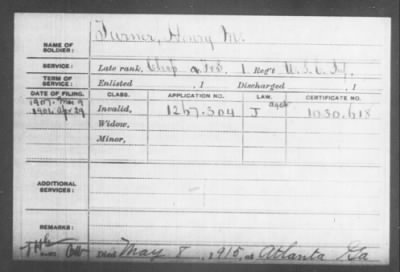 NAME OF SOLDIER: Turner, Henry M.
SERVICE: Late rank, Chap & F&S. 1 Reg't U.S.C. Inf.
TERM OF SERVICE: Enlisted , 1 Discharged , 1
DATE OF FILING. CLASS. APPLICATION NO. LAW. CERTIFICATE NO.
1907. Mar 9
1904 Apr 29 Invalid, 1267.504 J 1030.618
Widow,
Minor,
ADDITIONAL SERVICES:
REMARKS:
Died May 8, 1915, at Atlanta Ga